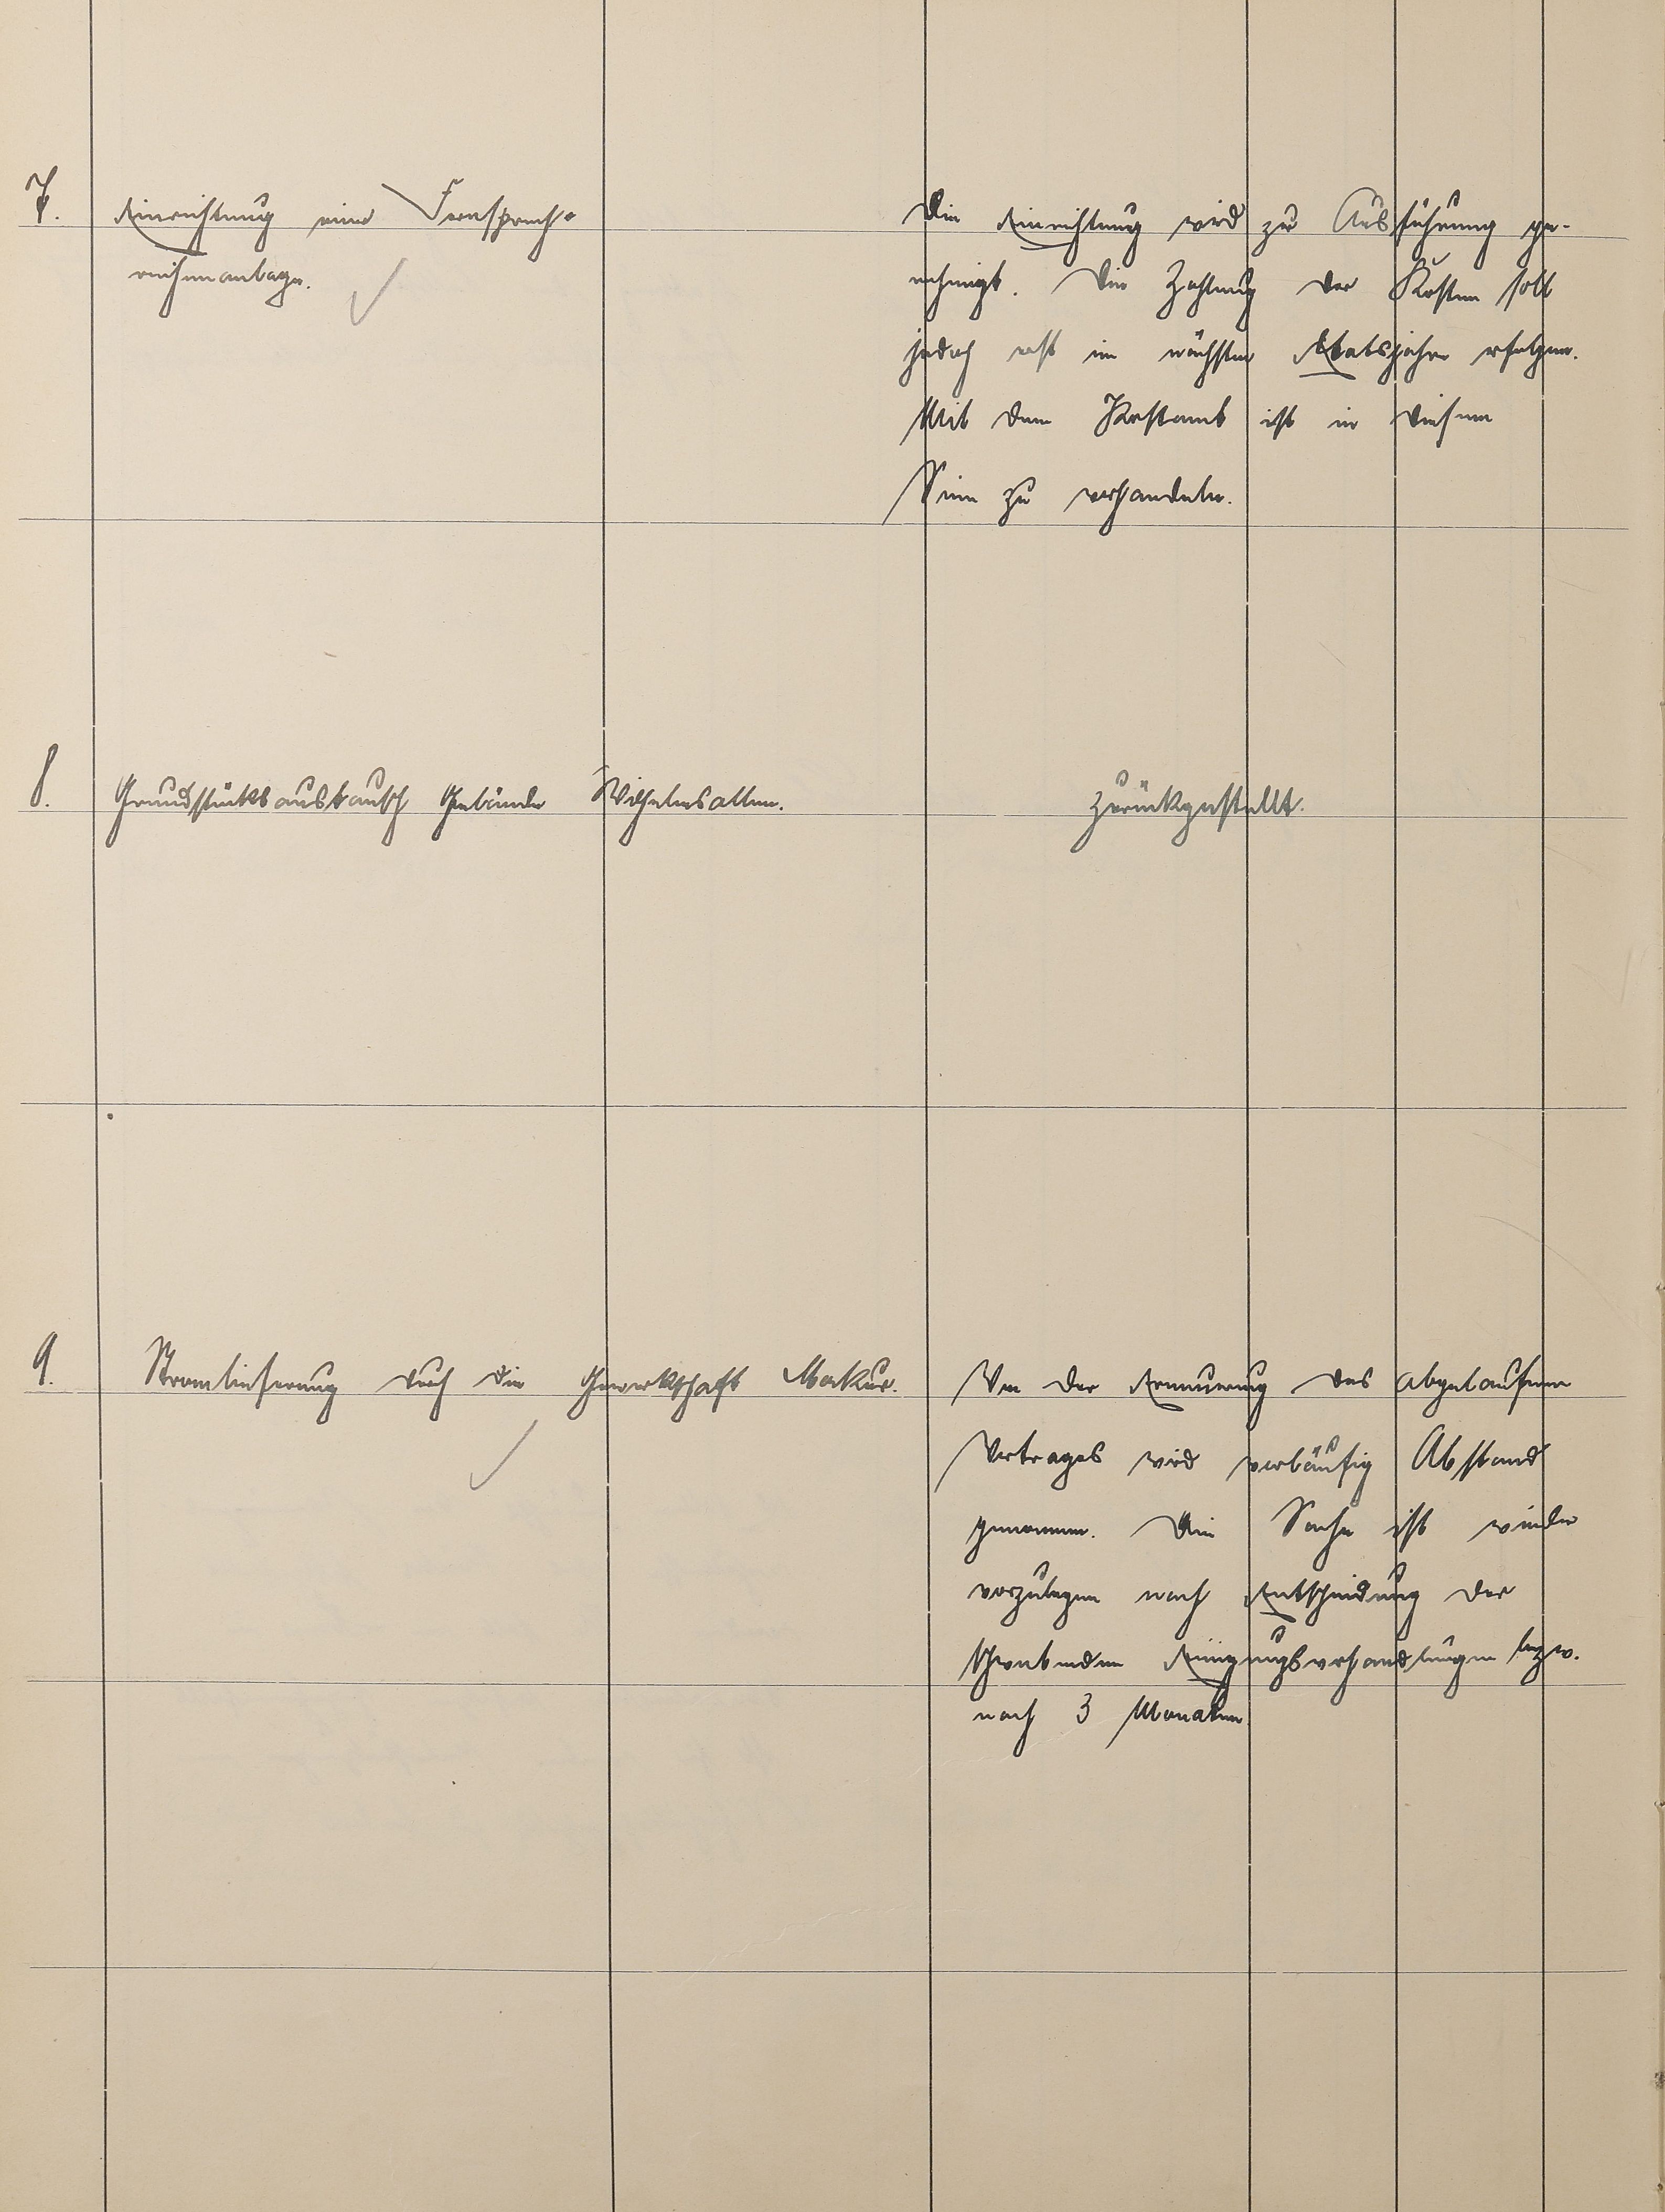 7.
Einrichtung einer Fernsprech-
reihenanlage.
Die Einrichtung wird zur Ausführung ge-
nehmigt. Die Zahlung der Kosten soll
jedoch erst im nächsten Etatsjahre erfolgen.
Mit dem Postamt ist in diesem
Sinn zu verhandeln.
8.
Grundstücksaustausch Gebäude Wilhelmsallee.
zurückgestellt.
9.
Stromlieferung durch die Gewerkschaft Merkur.
Von der Erneuerung des abgelaufenen
Vertrages wird vorläufig Abstand
genommen. Die Sache ist wieder
vorzulegen nach Entscheidung der
schwebenden Einigungsverhandlungen bzw.
nach 3 Monaten